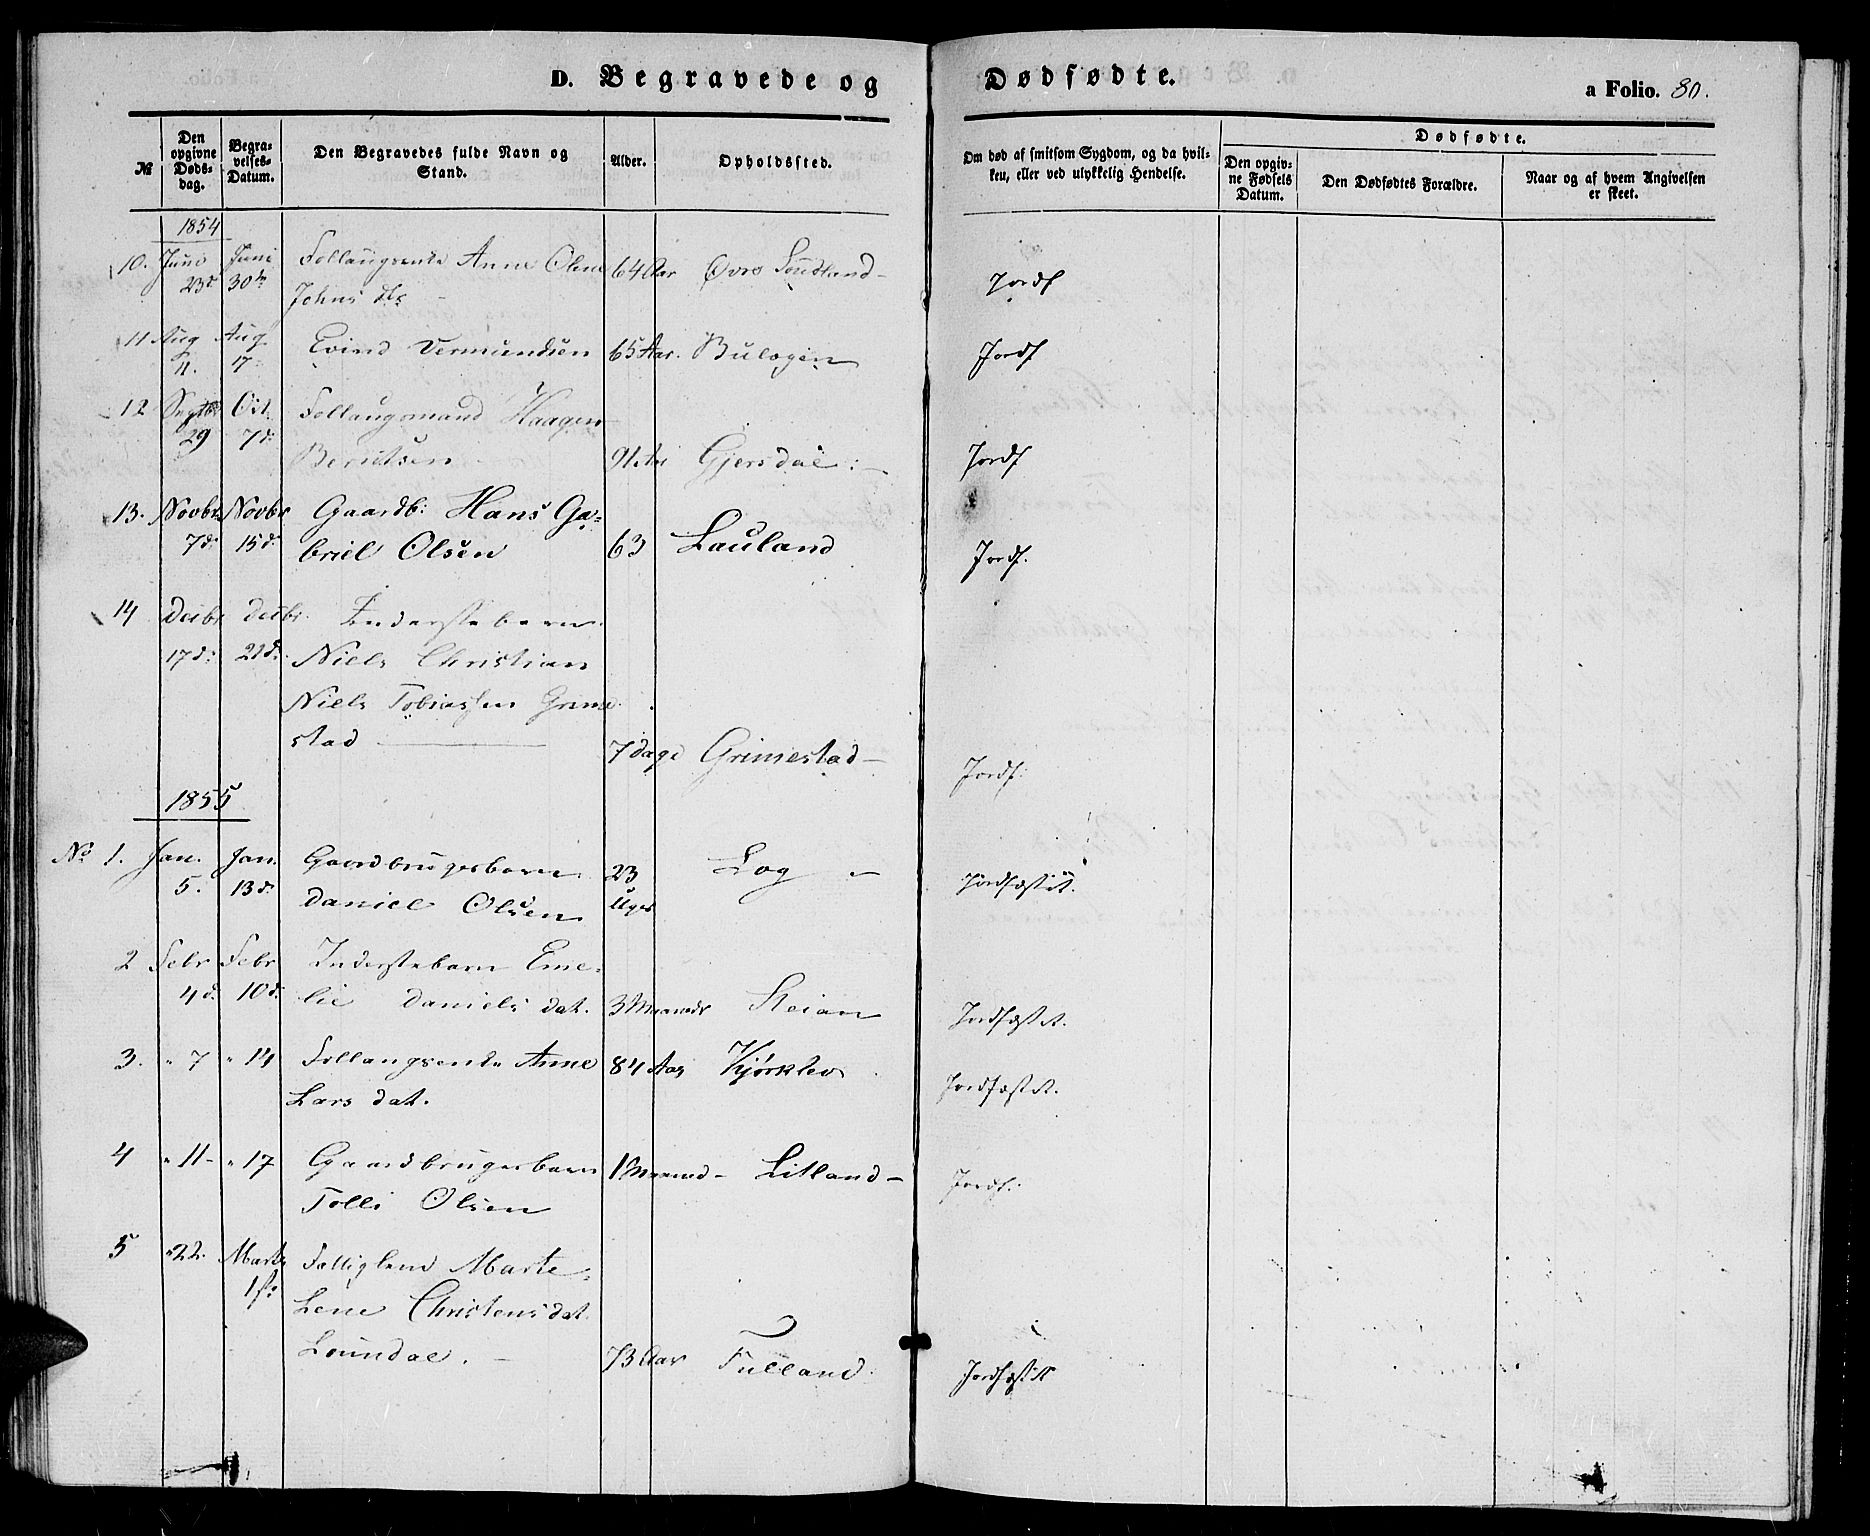 D. Begravede og Dødfødte.
a Folio. 80.
№
Den opgivne Døds-dag.
Begra-velses-Datum.
Den Begravedes fulde Navn og Stand.
Alder.
Opholdssted.
Om død af smitsom Sygdom, og da hvil-
ken, eller ved ulykkelig Hendelse.
Dødfødte.
Den opgiv-ne Fødsels Datum.
Den Dødfødtes Forældre.
Naar og af hvem Angivelsen er skeet.
1854
10. Juni Juni Follaugsenke Anne Oline 64 Aar Øvre
23d 30te Johnsdtr Jordf
11 Aug Aug Evind Vermundsen 65 Aar. Jordf
11. 17
12 Septbr Oct. Follaugsmand Haagen
29 7d: Berntsen 91 Aar Gjersdal Jordf
13. Novbr Novbr Gaardb: Hans Ga=
7d: 15d: briel Olsen 63 Lauland Jordf.
14 Decbr Decbr. Inderstebarn
17d: 21d: Niels Christian
Niels Tobiassen Grime
stad 7 dage Grimestad Jordf:
1855
No 1. Jan. Jan. Gaardbrugerbarn 23 Log Jordfæstet.
5. 13d: Daniel Olsen Uger
2 Febr Febr Inderstebarn Eme=
4d: 10d: lie Daniels dat. 3 Maaneder Steian Jordfæstet.
3. " 7 " 14 Follaugsenke Anne 84 Aar Kjørklev Jordfæstet.
Lars dat.
4 " 11 - " 17 Gaardbrugerbarn 1 Maaned - Litland - Jordf:
Tolle Olsen
5 " 22. Marts Fattiglem Marte
1ste Lene Christensdat.
73 Aar Fulland. Jordfæstet